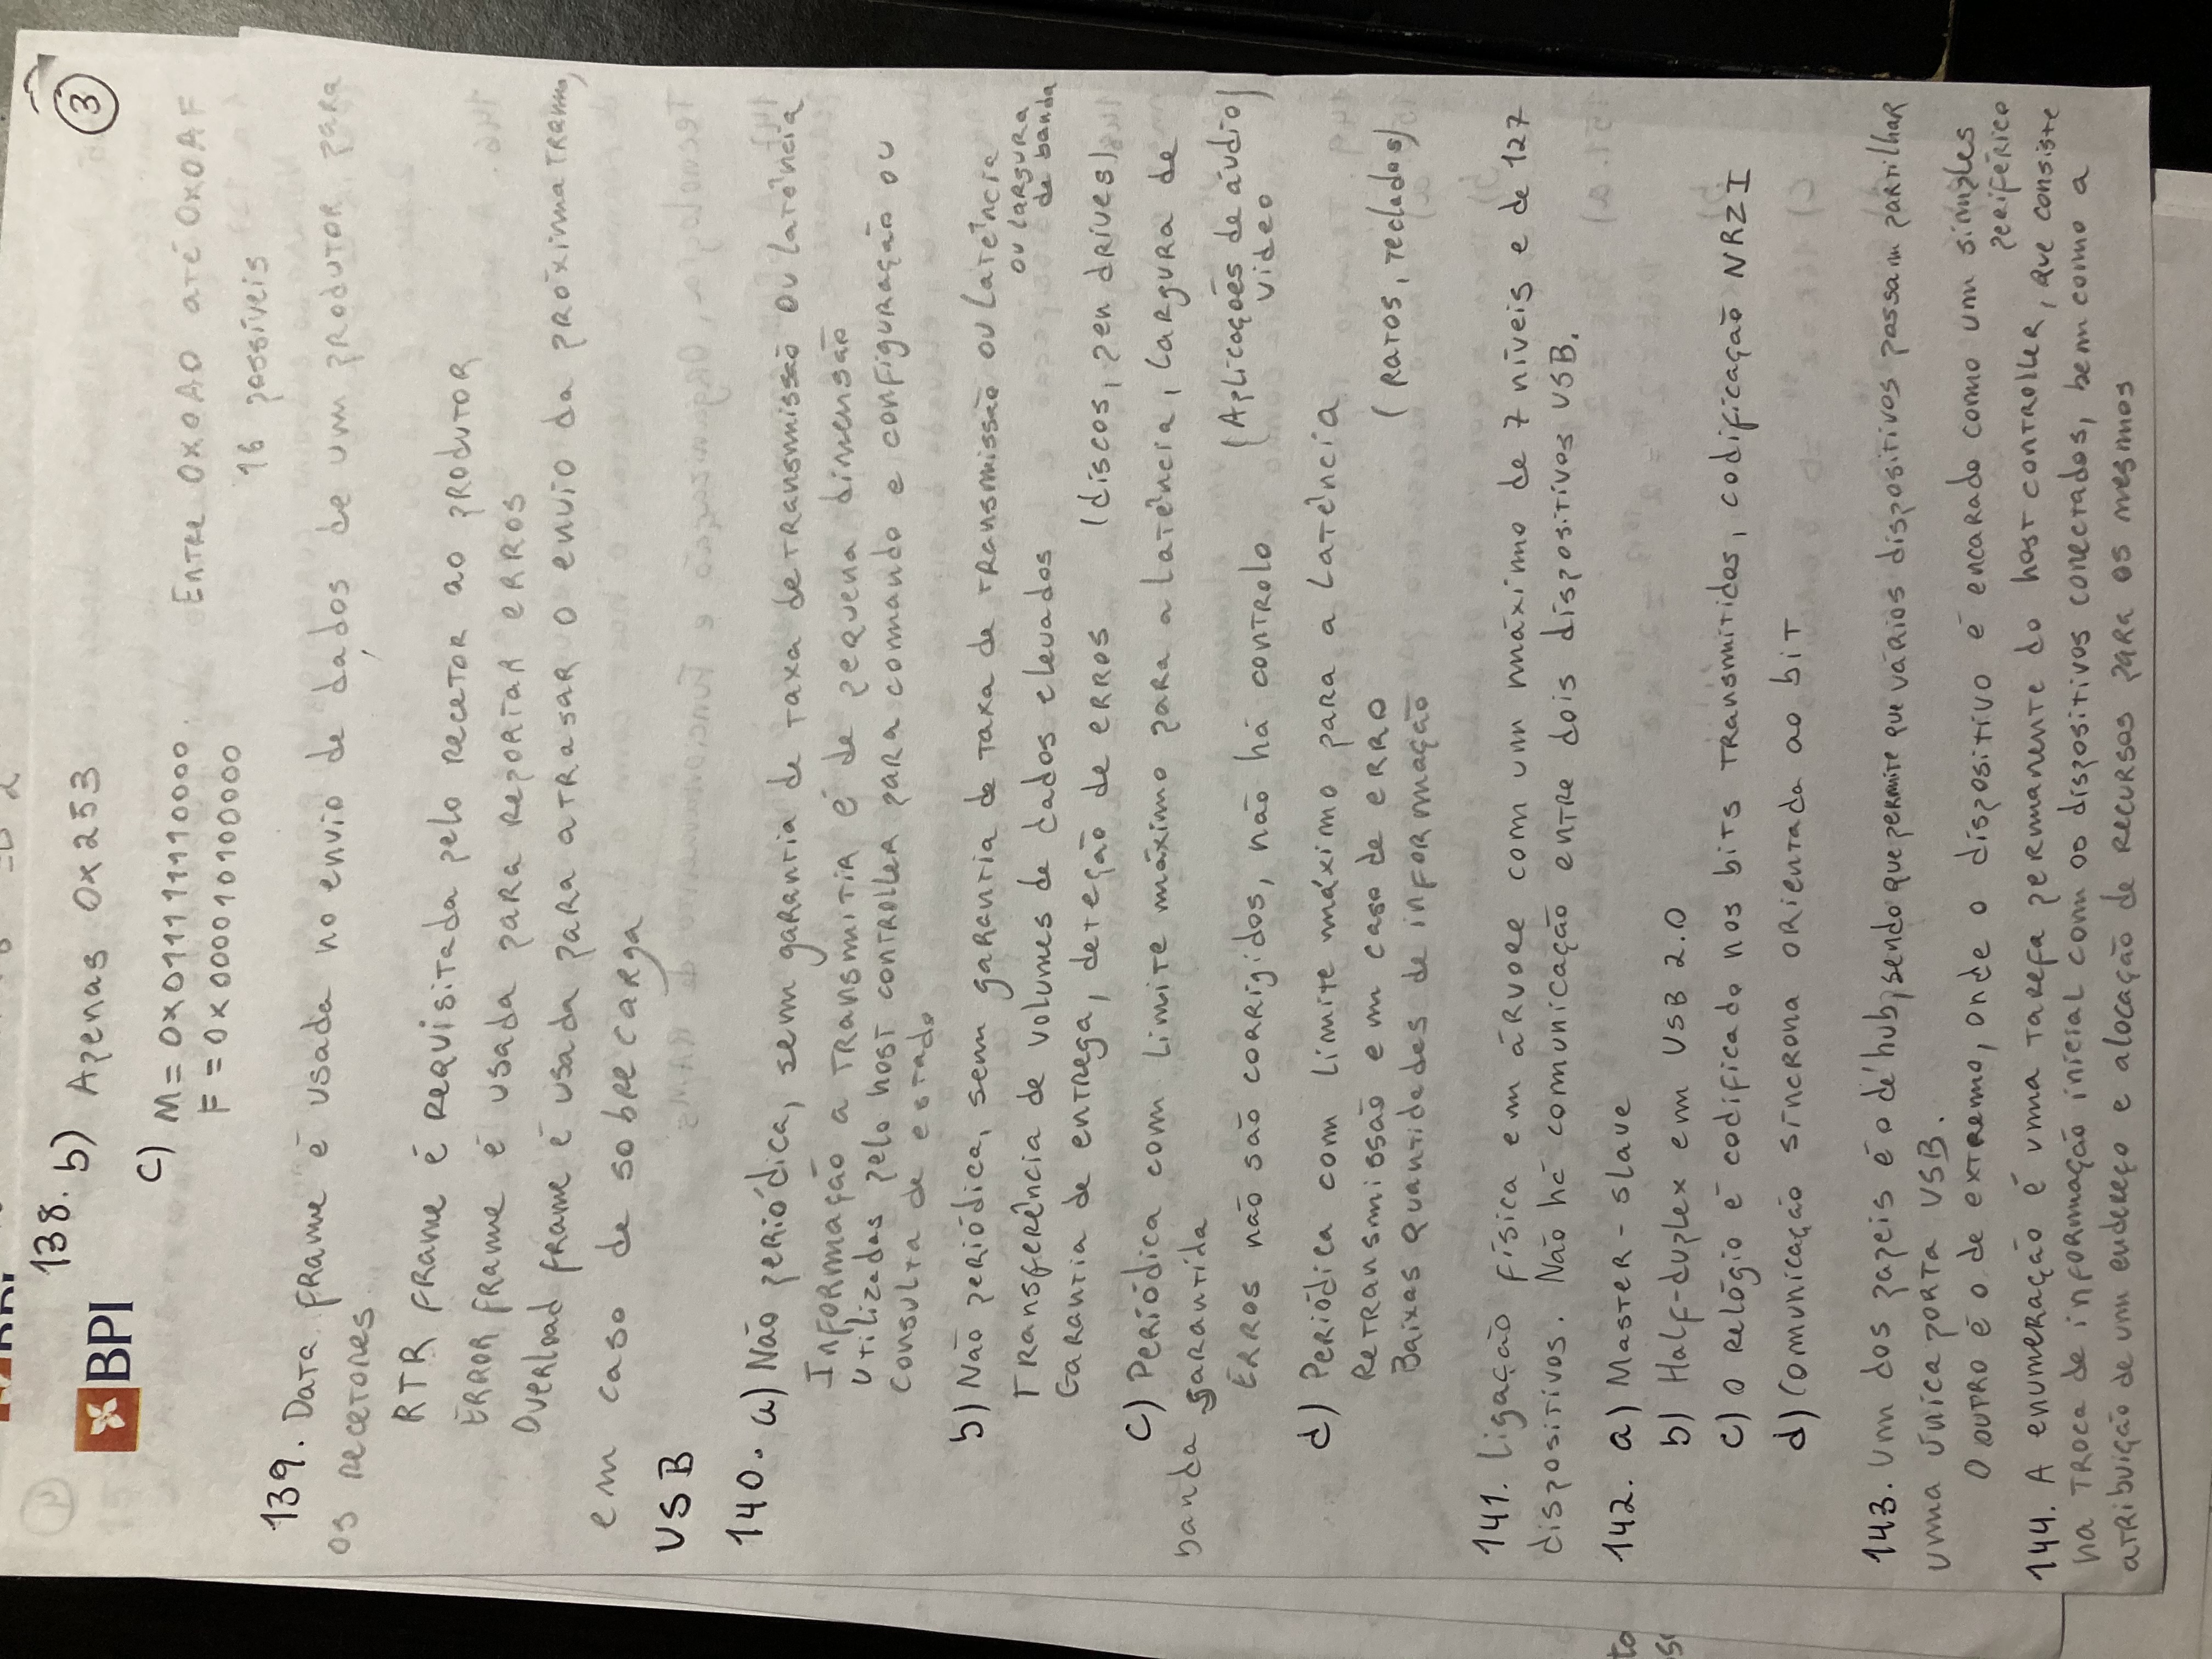 138. b) Apenas 0x253
3
BPI
c) M = 0x01111110000
F = 0x00010100000
Entre 0x0A0 até 0x0AF
16 possíveis
139. Data frame é usada no envio de dados de um produtor para
os recetores
RTR frame é requisitada pelo recetor ao produtor
Error frame é usada para reportar erros
Overload frame é usada para atrasar o envio da próxima trama,
em caso de sobrecarga
USB
140. a) Não periódica, sem garantia de taxa de transmissão ou latência
Informação a transmitir é de pequena dimensão
Utilizadas pelo host controller para comando e configuração ou
consulta de estado
b) Não periódica, sem garantia de taxa de transmissão ou latência
ou largura
de banda
Transferência de volumes de dados elevados
Garantia de entrega, deteção de erros (discos, pen drives)
c) Periódica com limite máximo para a latência, largura de
banda garantida
Erros não são corrigidos, não há controlo (Aplicações de áudio
video)
d) Periódica com limite máximo para a latência
Retransmissão em caso de erro
(ratos, teclados)
Baixas quantidades de informação
141. Ligação física em árvore com um máximo de 7 níveis e de 127
dispositivos. Não há comunicação entre dois dispositivos USB.
142. a) Master-slave
b) Half-duplex em USB 2.0
c) O relógio é codificado nos bits transmitidos, codificação NRZI
d) Comunicação síncrona orientada ao bit
143. Um dos papeis é o de hub, sendo que permite que vários dispositivos possam partilhar
uma única porta USB.
O outro é o de extremo, onde o dispositivo é encarado como um simples
periférico
144. A enumeração é uma tarefa permanente do host controller, que consiste
na troca de informação inicial com os dispositivos conectados, bem como a
atribuição de um endereço e alocação de recursos para os mesmos